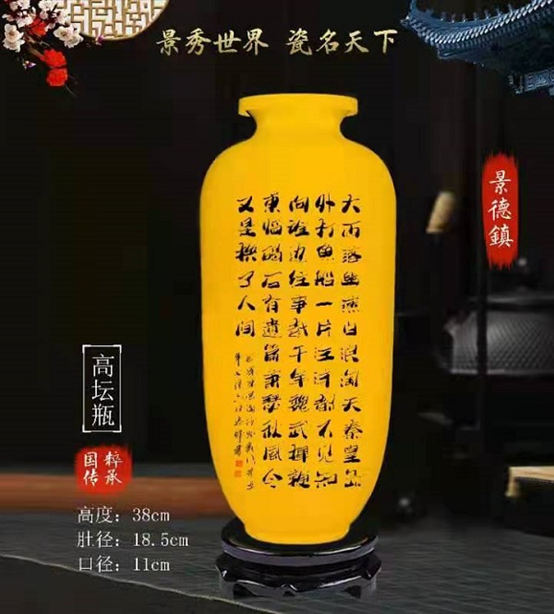 景秀世界 瓷名天下
景德鎮
大雨落幽燕白浪滔天秦皇岛
外打魚船一片汪洋都不见知
向谁边往事越千年魏武揮鞭
東临碣石有遗篇萧瑟秋风今
又是换了人间
高坛瓶
国粹
传承
高度:38cm
肚径:18.5cm
口径:11cm